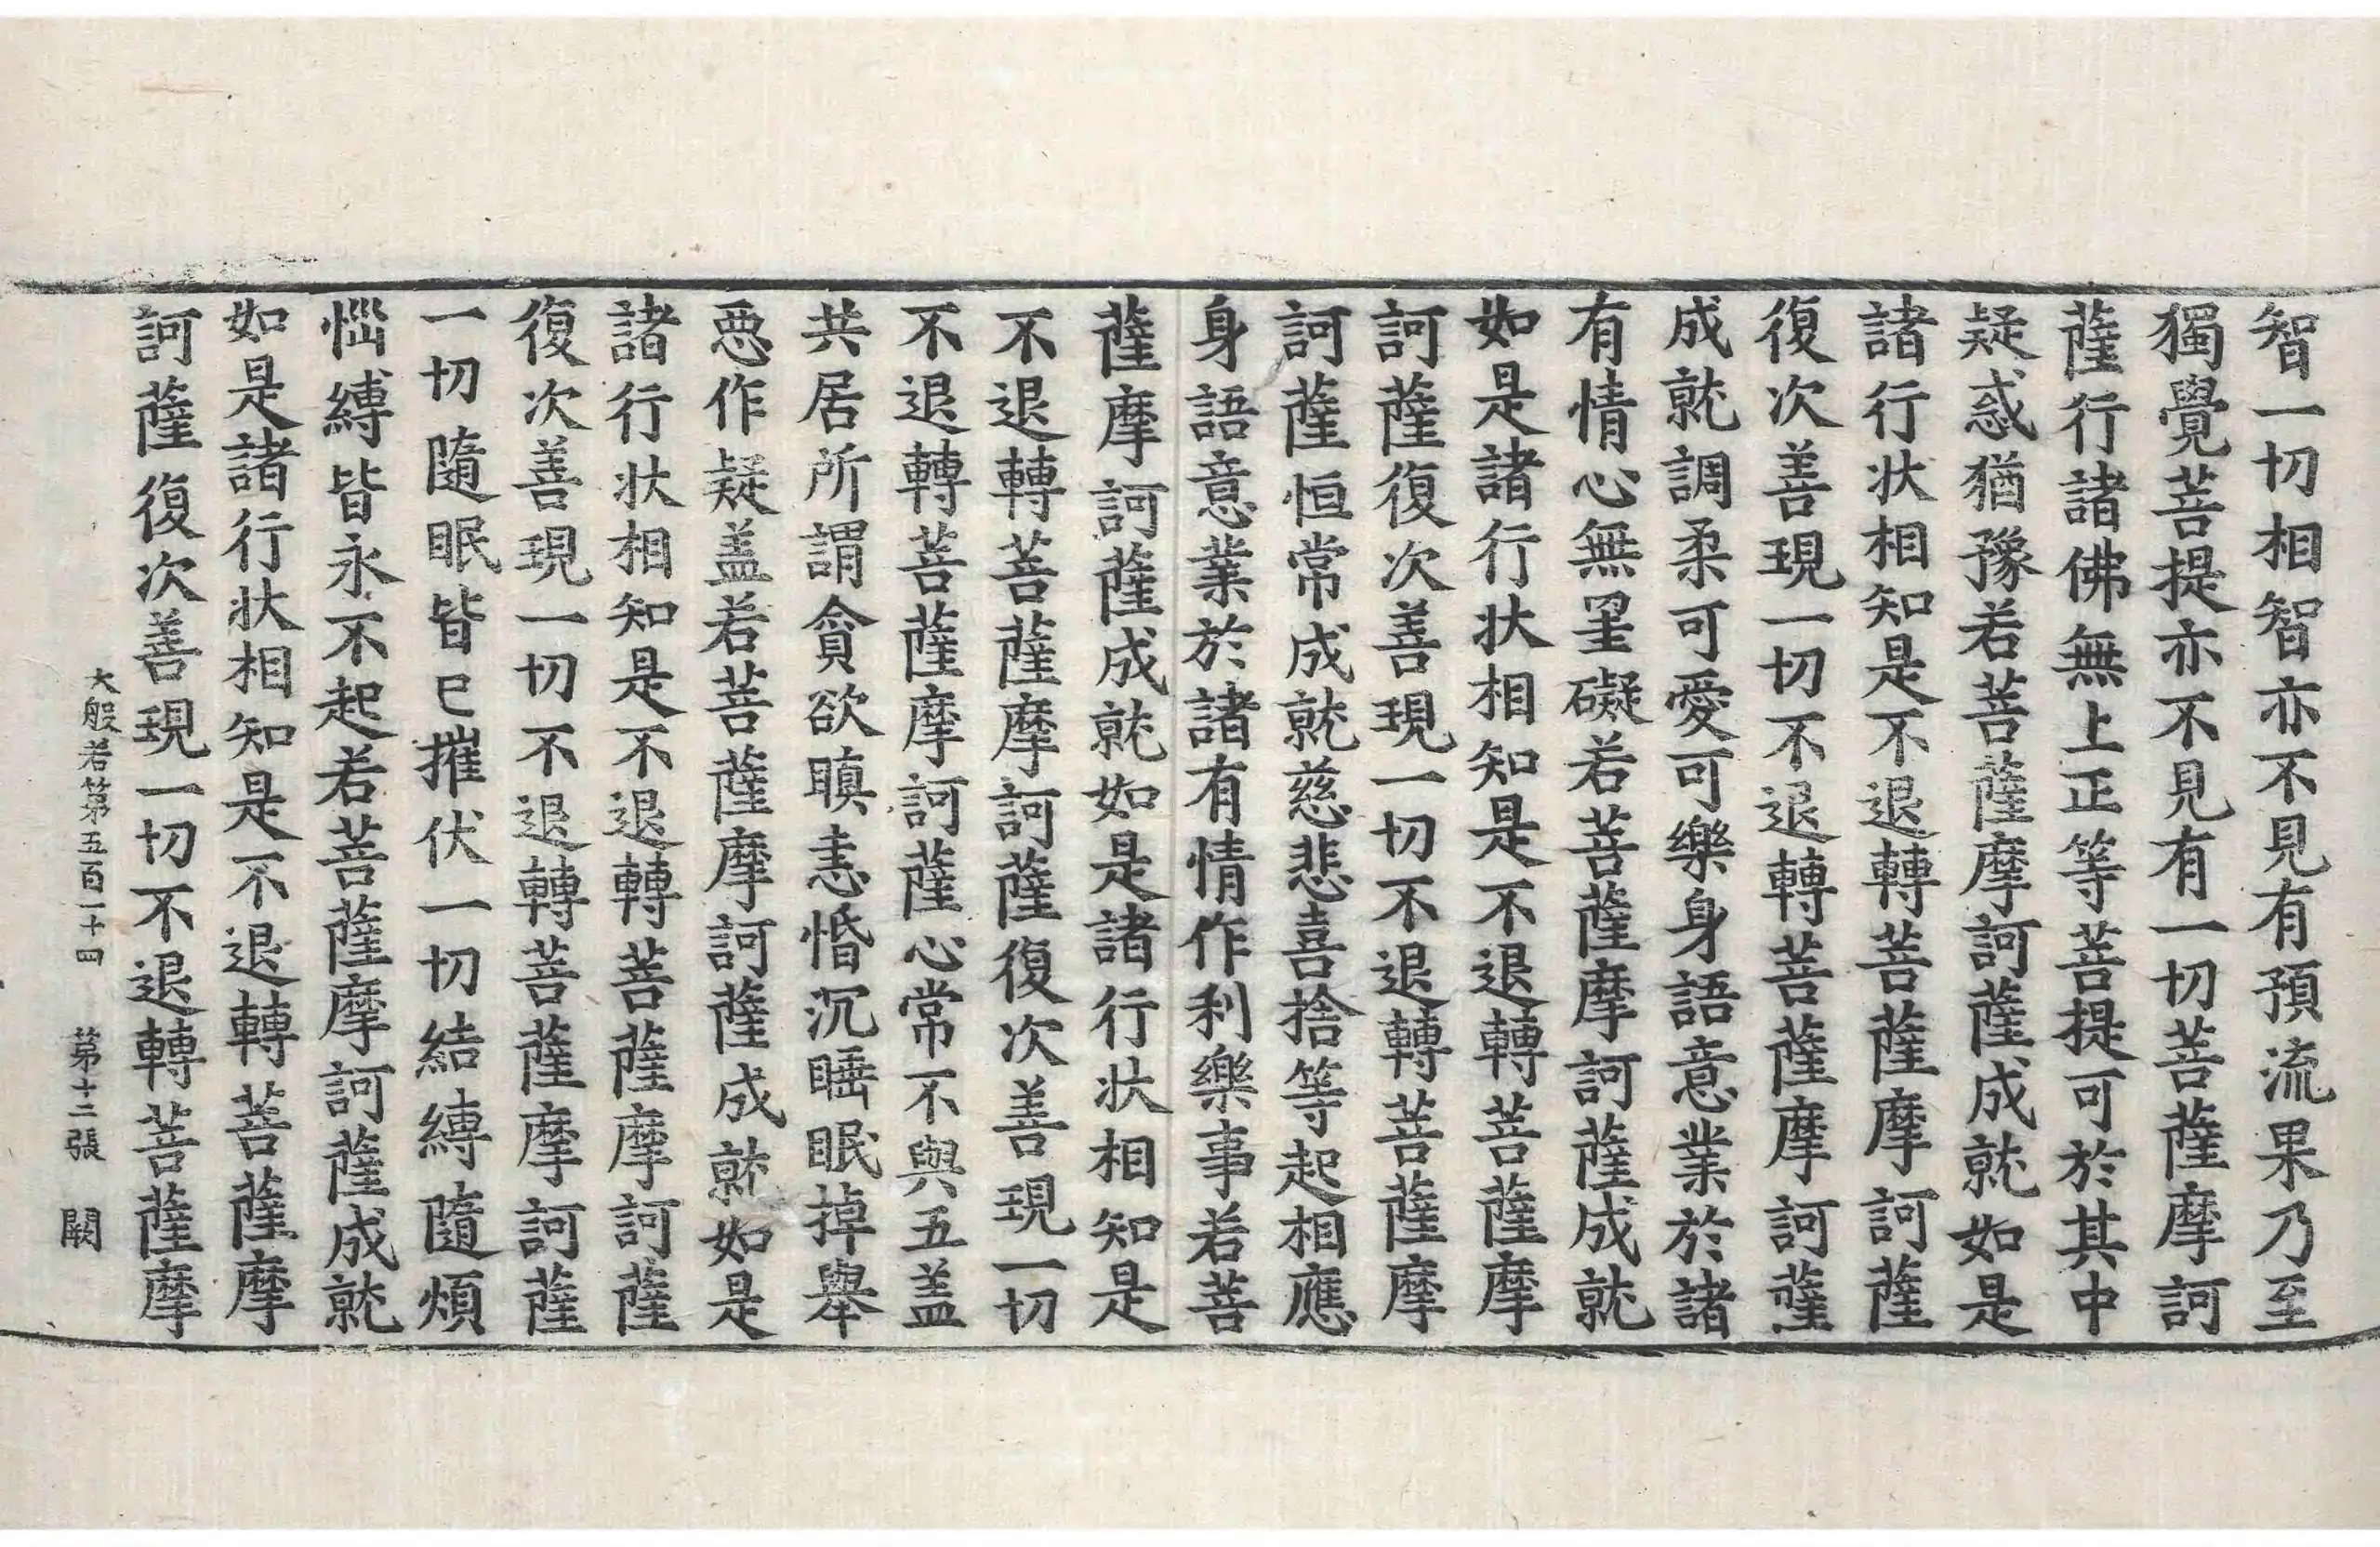 智一切相智亦不見有預流果乃至
獨覺菩提亦不見有一切菩薩摩訶
薩行諸佛無上正等菩提可於其中
疑惑猶豫若菩薩摩訶薩成就如是
諸行狀相知是不退轉菩薩摩訶薩
復次善現一切不退轉菩薩摩訶薩
成就調柔可愛可樂身語意業於諸
有情心無罣礙若菩薩摩訶薩成就
如是諸行狀相知是不退轉菩薩摩
訶薩復次善現一切不退轉菩薩摩
訶薩恒常成就慈悲喜捨等起相應
身語意業於諸有情作利樂事若菩
薩摩訶薩成就如是諸行狀相知是
不退轉菩薩摩訶薩復次善現一切
不退轉菩薩摩訶薩心常不與五盖
共居所謂貪欲瞋恚惛沉睡眠掉舉
惡作疑盖若菩薩摩訶薩成就如是
諸行狀相知是不退轉菩薩摩訶薩
復次善現一切不退轉菩薩摩訶薩
一切隨眠皆已摧伏一切結縛隨煩
惱縛皆永不起若菩薩摩訶薩成就
如是諸行狀相知是不退轉菩薩摩
訶薩復次善現一切不退轉菩薩摩
大般若第五百一十四 第十二張 闕